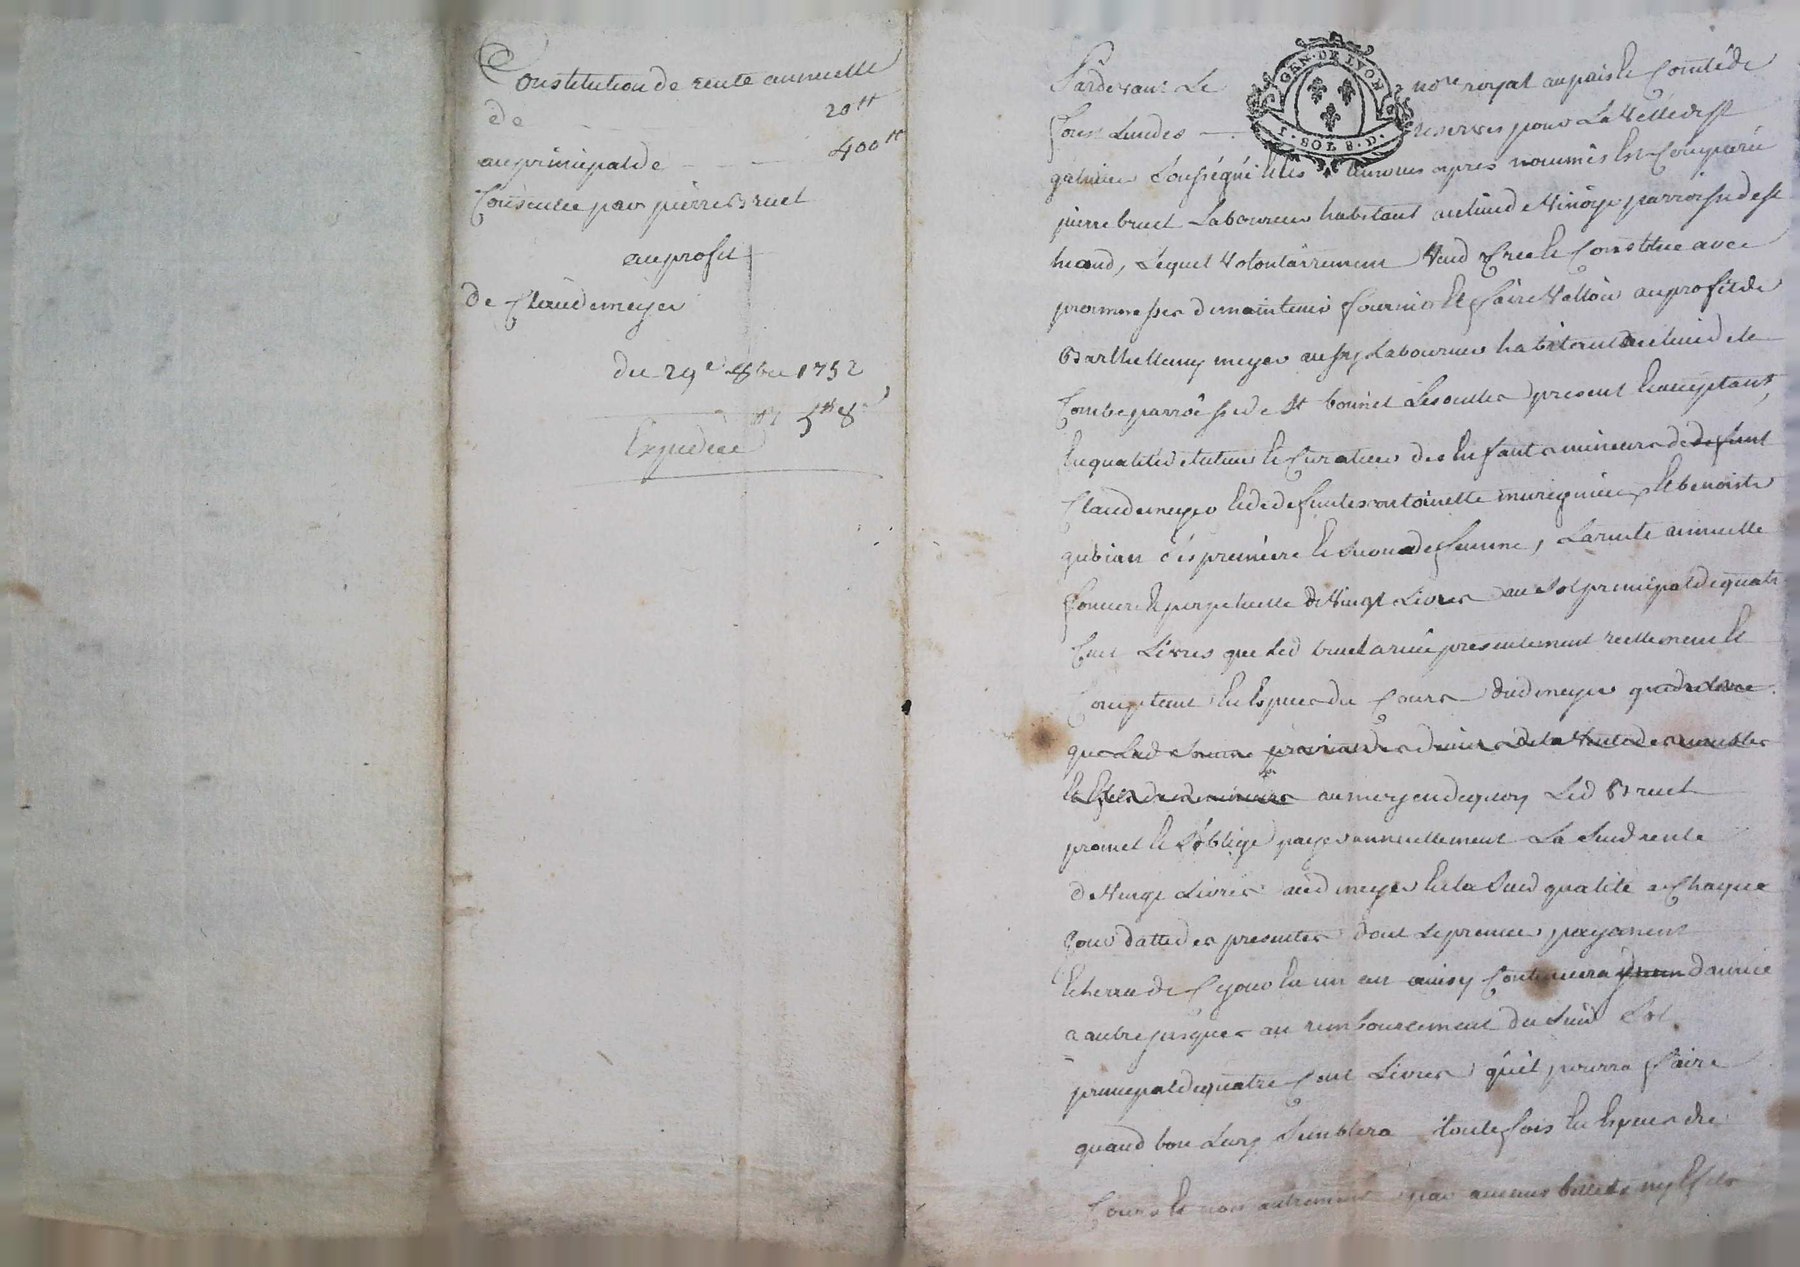 Constitution de rente annuelle
de 20tt
au principal de 400tt
Consentie par pierre Bruel
au profit
de Claude meyer
du 29e 8bre 1752
Expediée
GEN. DE LYON
1. SOL 8. D.
Pardevant Le no.re royal au pais et Comté de
forest un des reservés pour La Ville de St
galmier soussigné et les temoins apres nommés est Comparu
pierre bruel Laboureur habitant au lieu de parroisse de St
heand, Lequel Volontairement Vend Crée et Constitue avec
promesses de maintenir fournir et faire Valloir au profit de
Barthellemy meyer aussy Laboureur habitant au lieu de la
Combe parroisse de St bonnet Les oulles present et acceptant,
En qualité de tuteur et Curateur des Enfants mineurs de defunt
Claude meyer et de defuntes antoinette et benoiste
gubian ses premiere et seconde femme, La rente annuelle
fonciere et perpetuelle de Vingt Livres au sol principal de quatre
Cent Livres que Led bruel a reçu presentement reellement et
Comptant En Especes du Cours dud meyer qui declare
que Lad somme provient des deniers de la Vente des meubles
et effets desd mineurs au moyen de quoy Led Bruel
promet et s'oblige payer annuellement La susd rente
de Vingt Livres aud meyer En la susd qualité a Chaque
jour datte des presentes dont Le premier payement
Echerra de Ce jour En un an ainsy Continuera d'année
a autre jusques au remboursement du susd sol
principal de quatre Cent Livres qu'il pourra faire
quand bon Luy semblera toutefois En Especes de
Cours et non autrement par aucuns billets ny Effets